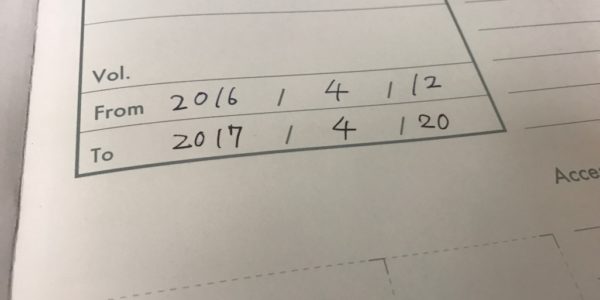 Vol.
From 2016 / 4 / 12
To 2017 / 4 / 20
Acce